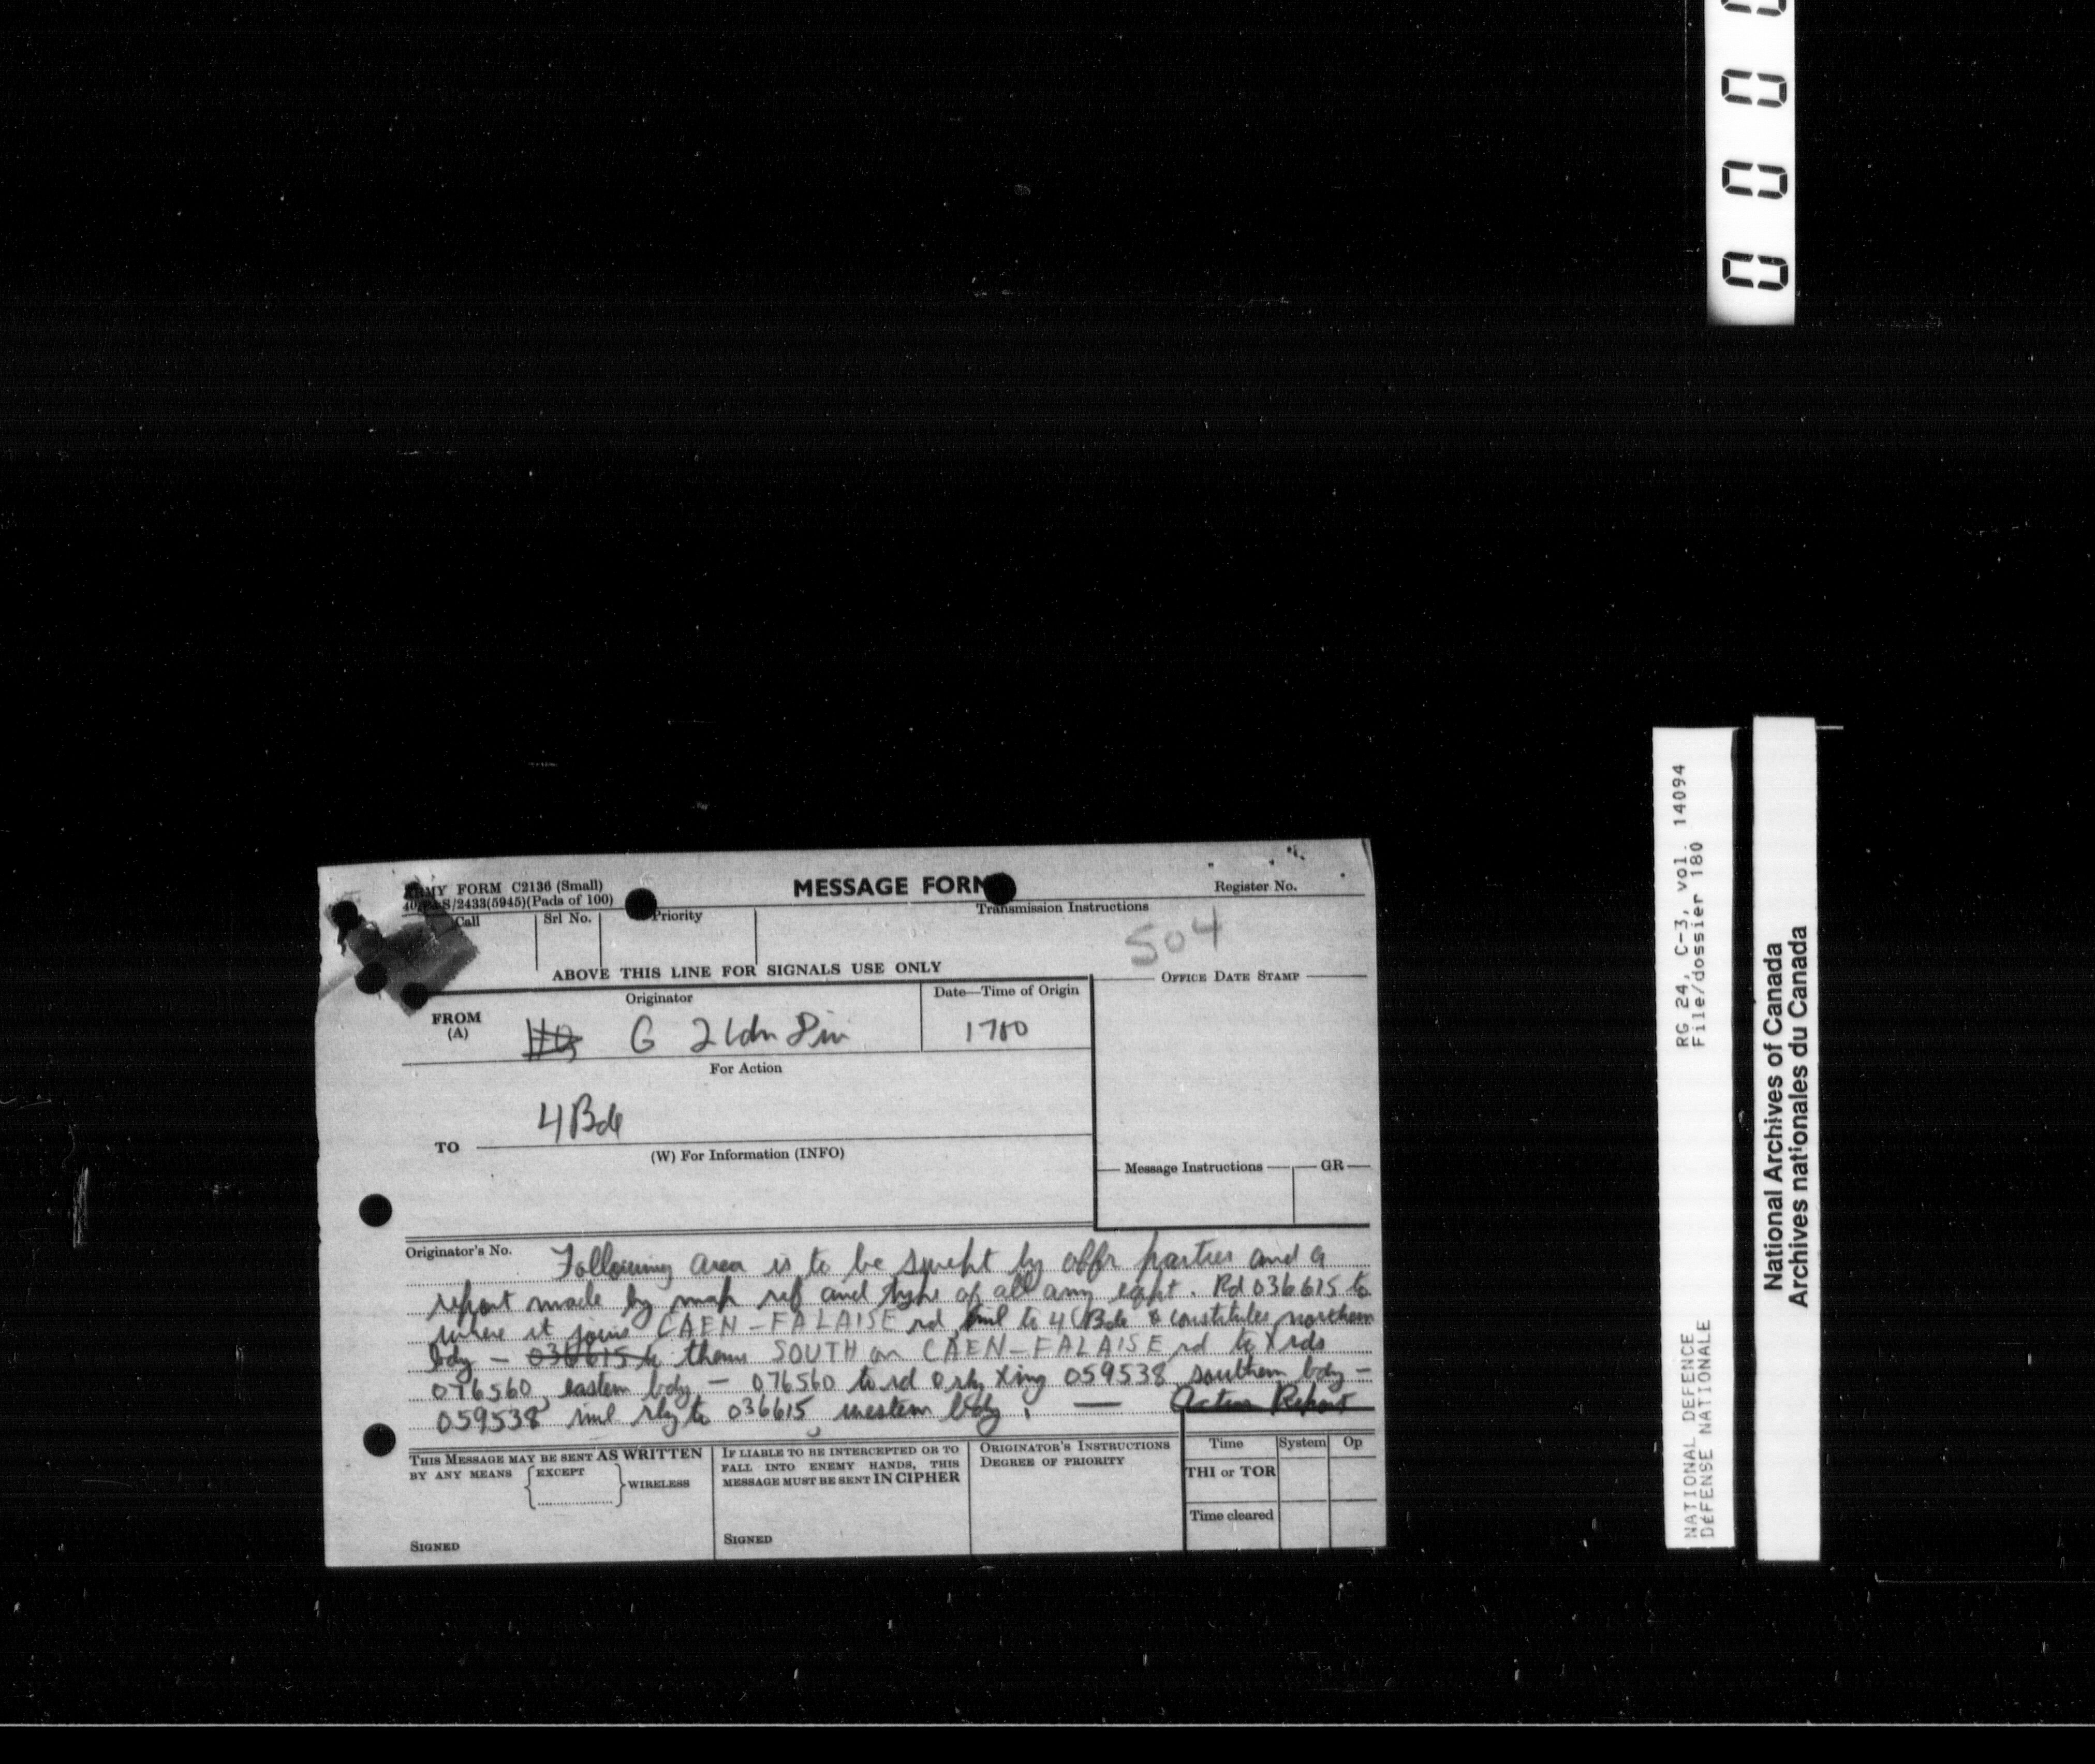 0 0 0 0
ARMY FORM C2136 (Small)
S/2433(5945)(Pads of 100)
MESSAGE FORM
Register No.
Call
Srl No.
Priority
Transmission Instructions
504
ABOVE THIS LINE FOR SIGNALS USE ONLY
OFFICE DATE STAMP
Originator
Date—Time of Origin
FROM
(A)
HQ G 2 Cdn Div
1700
For Action
4 Bde
TO
(W) For Information (INFO)
Message Instructions
GR
Originator's No.
Following area is to be swept by offr parties and a
report made by map ref and type of all amy eqpt. Rd 036615 to
where it joins CAEN-FALAISE rd, incl to 4 Bde & constitutes northern
bdy - 036615 to thence SOUTH on CAEN-FALAISE rd to X rds
076560, eastern bdy - 076560 to rd & rly Xing 059538, southern bdy -
059538 incl rly to 036615, western bdy. — Action Report
THIS MESSAGE MAY BE SENT AS WRITTEN
BY ANY MEANS
EXCEPT
WIRELESS
SIGNED
IF LIABLE TO BE INTERCEPTED OR TO
FALL INTO ENEMY HANDS, THIS
MESSAGE MUST BE SENT IN CIPHER
SIGNED
ORIGINATOR'S INSTRUCTIONS
DEGREE OF PRIORITY
Time
System
Op
THI or TOR
Time cleared
RG 24, C-3, vol. 14094
File/dossier 180
NATIONAL DEFENCE
DÉFENSE NATIONALE
National Archives of Canada
Archives nationales du Canada